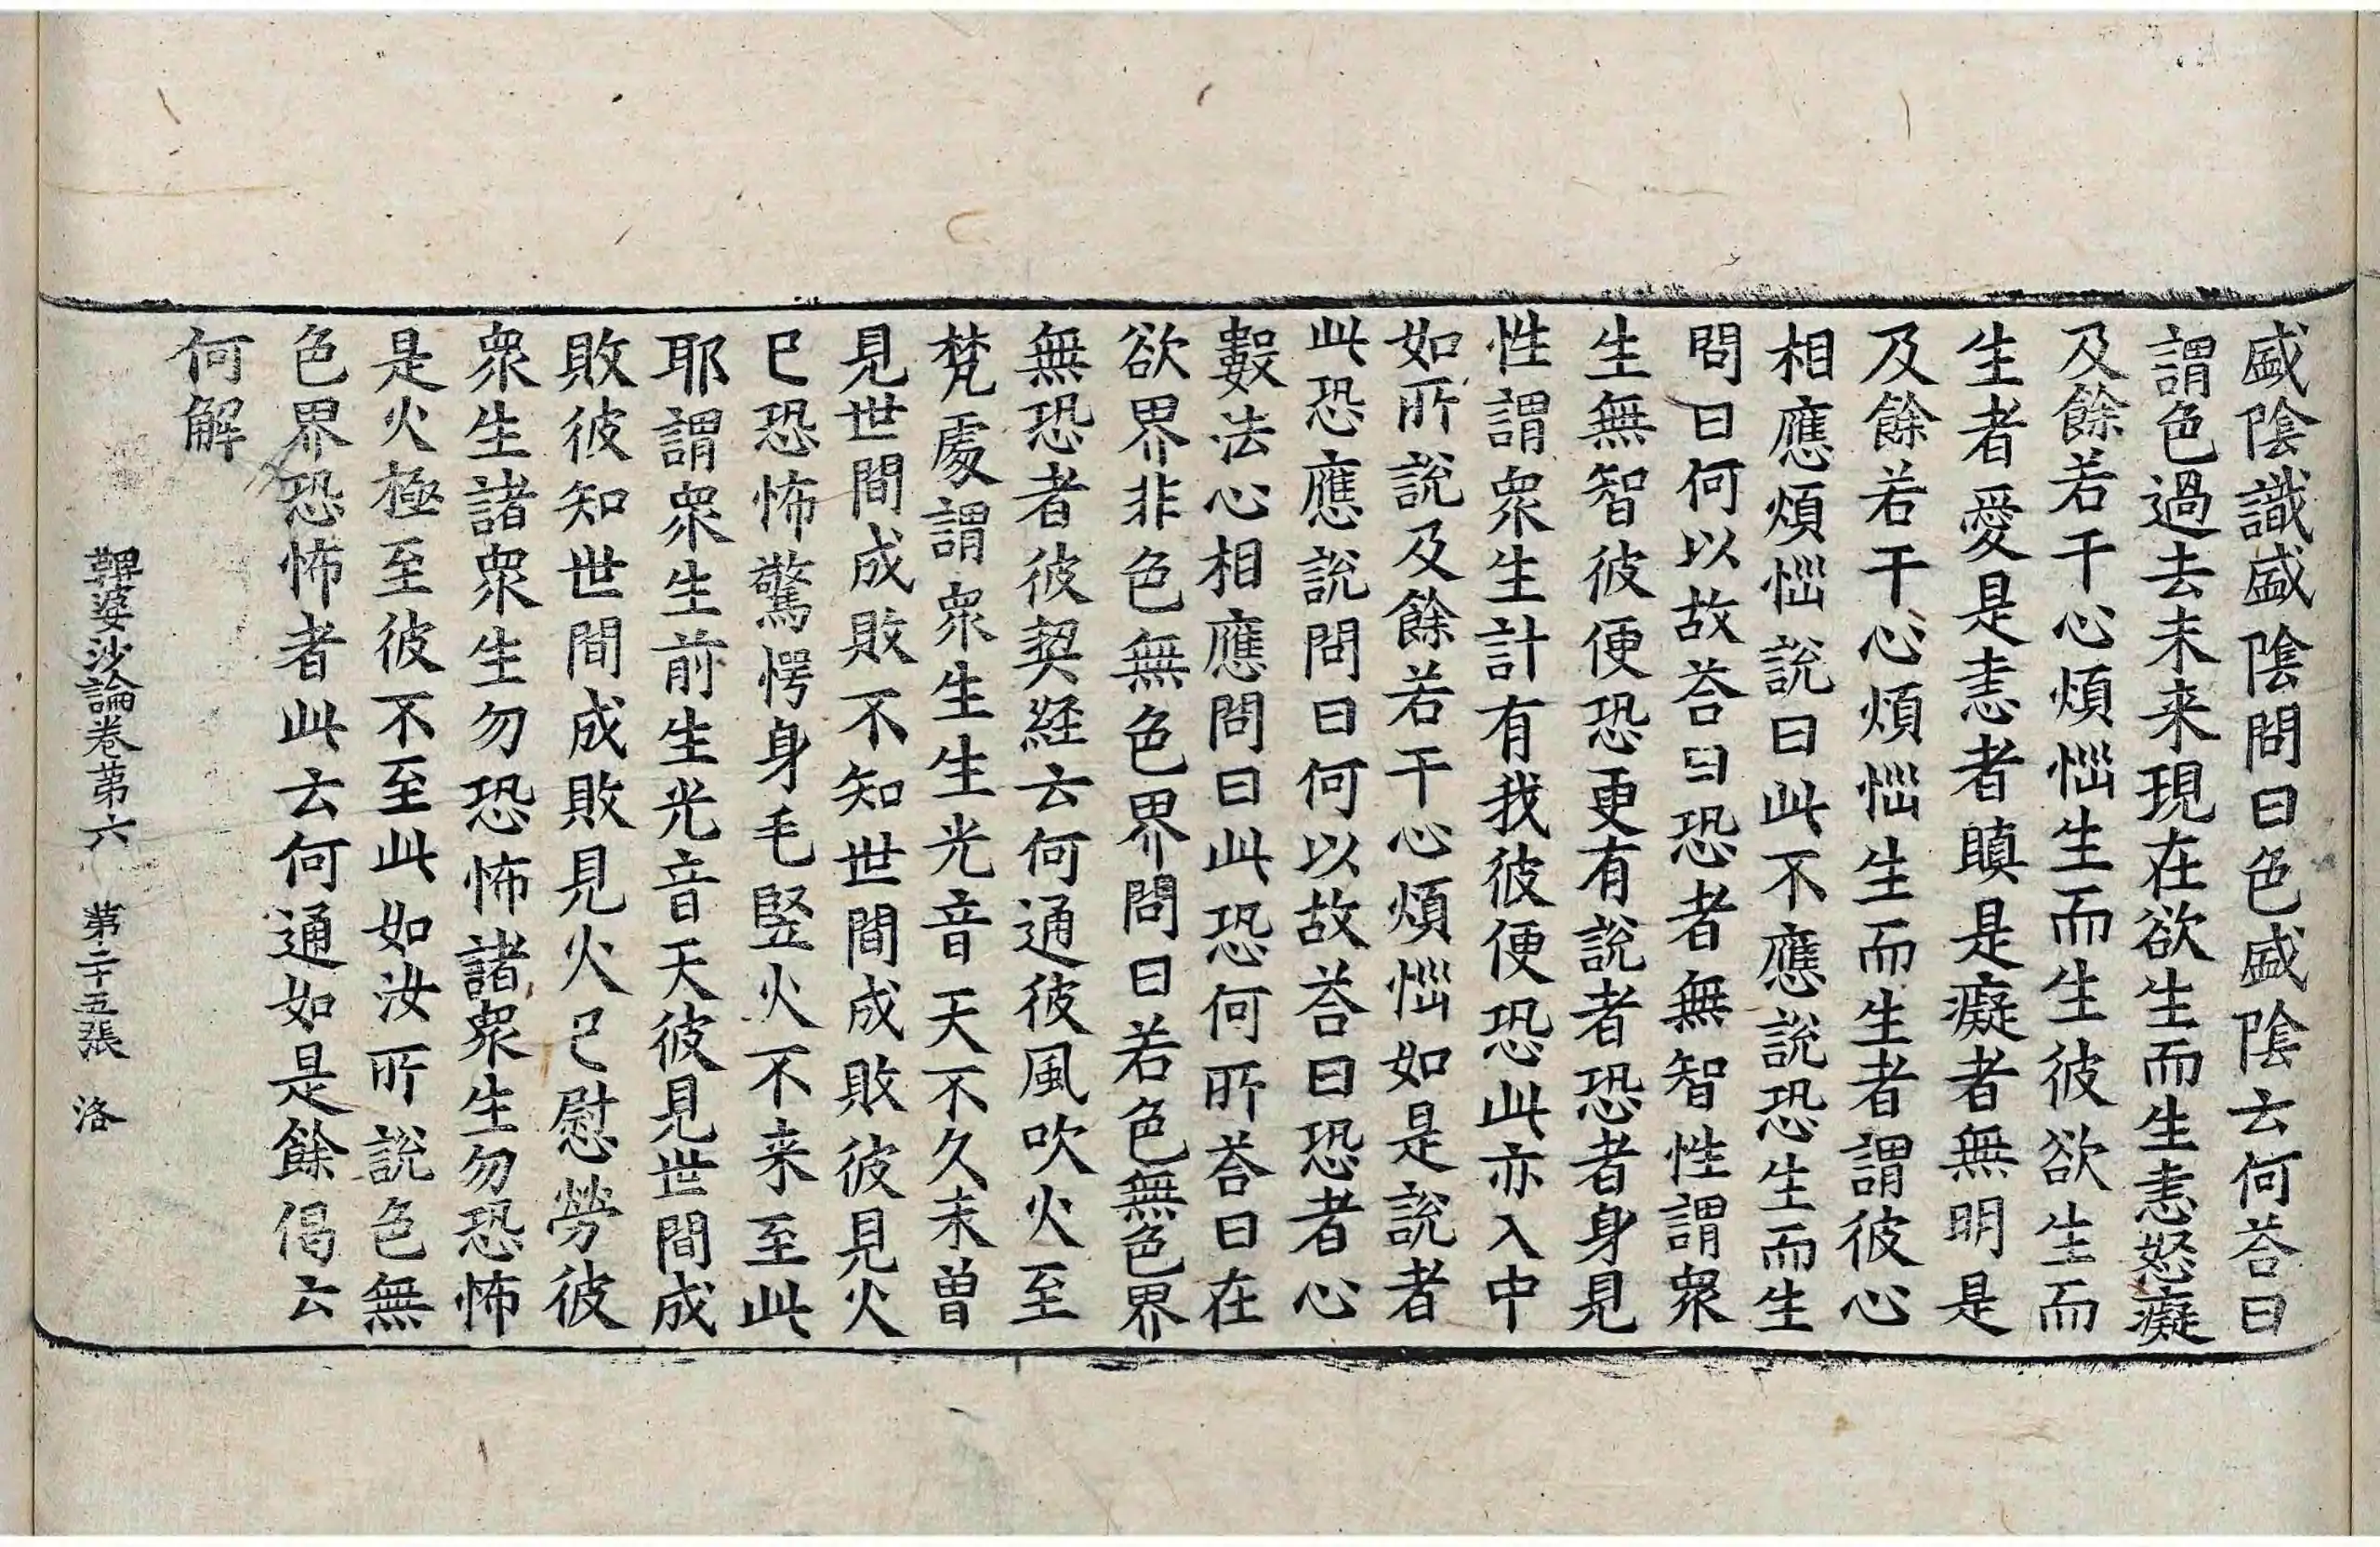 盛陰識盛陰問曰色盛陰云何荅曰
謂色過去未来現在欲生而生恚怒癡
及餘若干心煩惱生而生彼欲生而
生者愛是恚者瞋是癡者無明是
及餘若干心煩惱生而生者謂彼心
相應煩惱說曰此不應說恐生而生
問曰何以故荅曰恐者無智性謂衆
生無智彼便恐更有說者恐者身見
性謂衆生計有我彼便恐此亦入中
如所說及餘若干心煩惱如是說者
此恐應說問曰何以故荅曰恐者心
數法心相應問曰此恐何所荅曰在
欲界非色無色界問曰若色無色界
無恐者彼契経云何通彼風吹火至
梵處謂衆生生光音天不久未曾
見世間成敗不知世間成敗彼見火
已恐怖驚愕身毛竪火不来至此
耶謂衆生前生光音天彼見世間成
敗彼知世間成敗見火已慰勞彼
衆生諸衆生勿恐怖諸衆生勿恐怖
是火極至彼不至此如汝所說色無
色界恐怖者此云何通如是餘偈云
何解
鞞婆沙論卷第六 第二十五張 洛